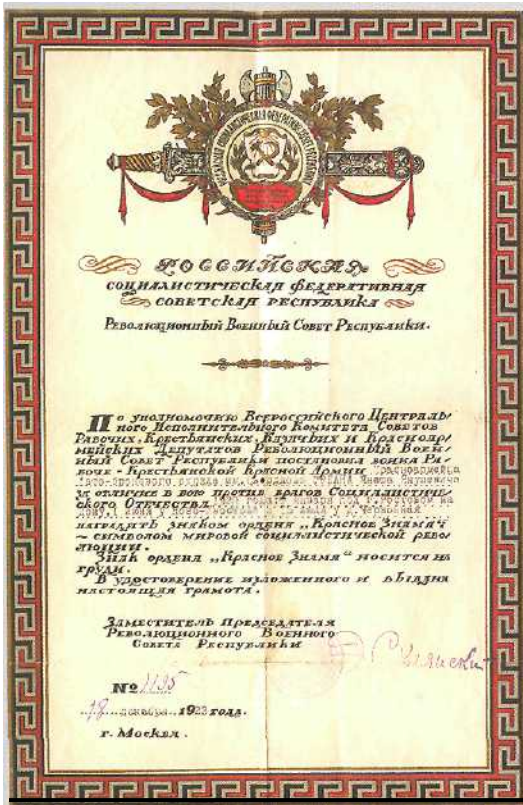 РОССИЙСКАЯ
СОЦИАЛИСТИЧЕСКАЯ ФЕДЕРАТИВНАЯ
СОВЕТСКАЯ РЕСПУБЛИКА
РЕВОЛЮЦИОННЫЙ ВОЕННЫЙ СОВЕТ РЕСПУБЛИКИ.
По уполномочию Всероссийского Централь-
ного Исполнительного Комитета Советов
Рабочих, Крестьянских, Казачьих и Красноар-
мейских Депутатов Революционный Воен-
ный Совет Республики постановил воина Ра-
боче-Крестьянской Красной Армии Красноармейца
за отличие в бою против врагов Социалистиче-
ского Отечества
наградить знаком ордена „Красное Знамя“
~ символом мировой социалистической рево-
люции.
Знак ордена „Красное Знамя“ носится на
груди.
В удостоверение изложенного и выдана
настоящая грамота.
Заместитель Председателя
Революционного Военного
Совета Республики
№
декабря 1923 года.
г. Москва.